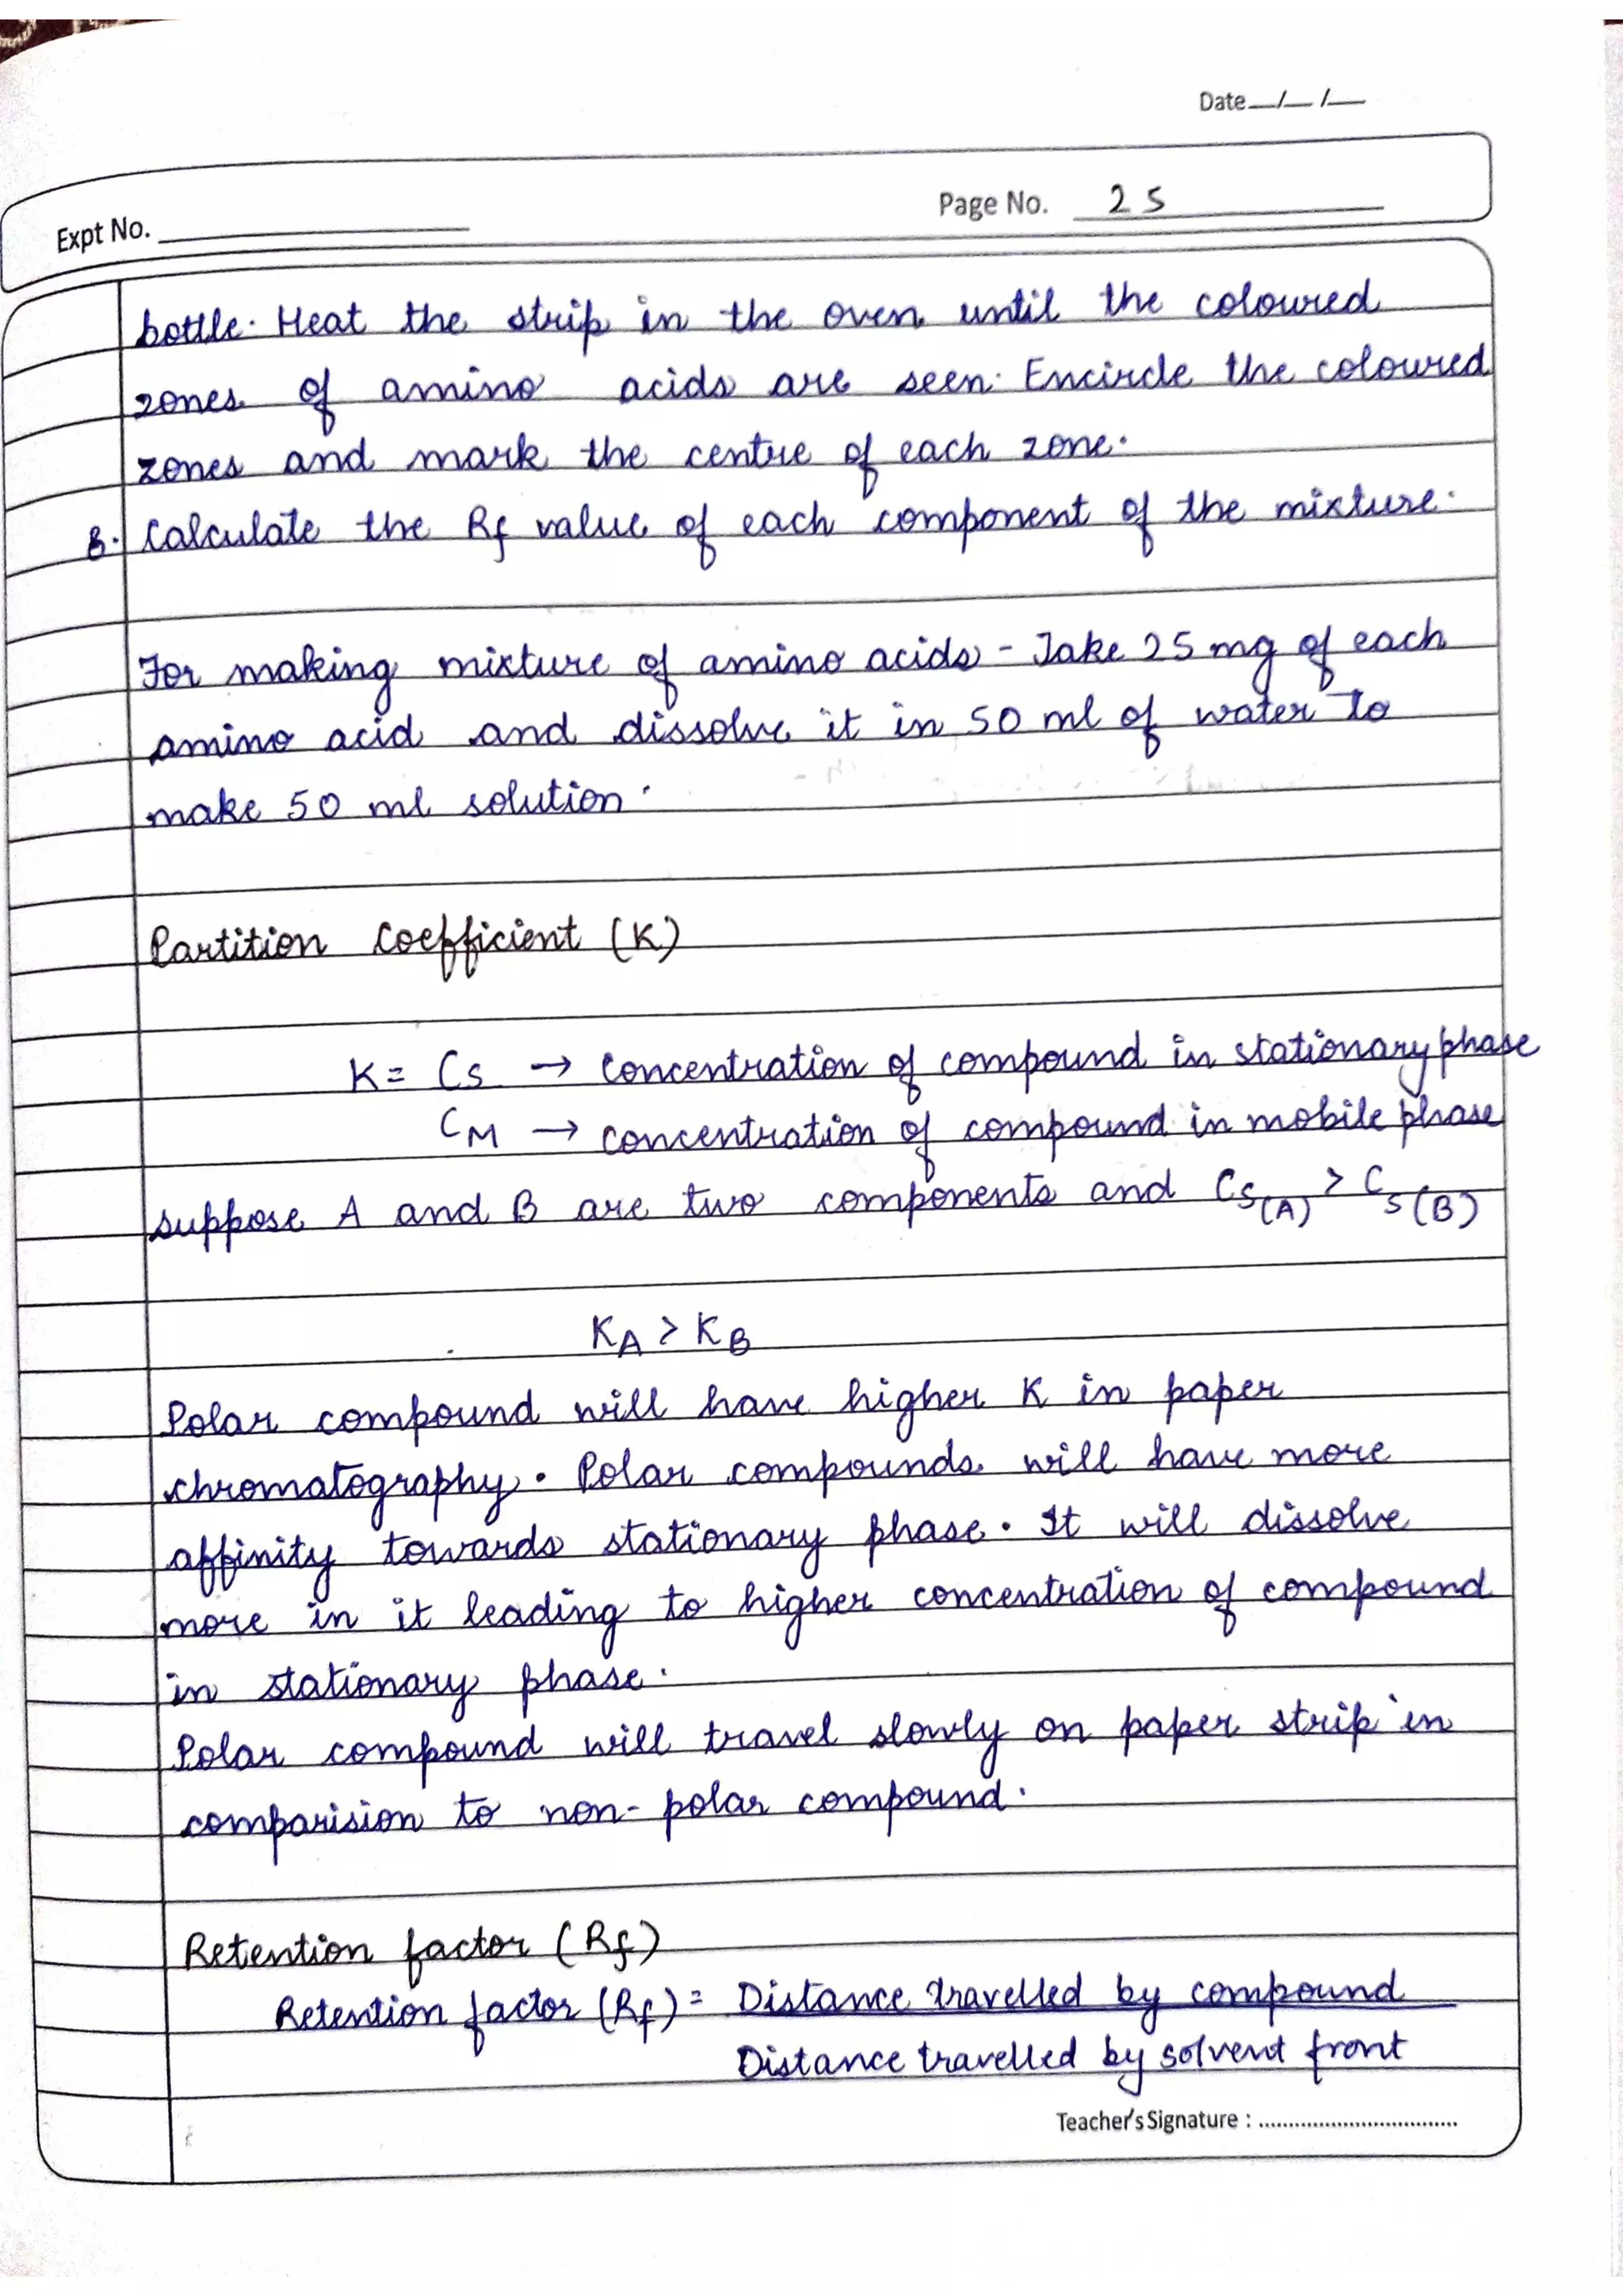 Date__/__/__
Page No. 25
Expt No.
bottle. Heat the strip in the oven until the coloured
zones of amino acids are seen. Encircle the coloured
zones and mark the centre of each zone.
8. Calculate the Rf value of each component of the mixture.
For making mixture of amino acids - Take 25 mg of each
amino acid and dissolve it in 50 ml of water to
make 50 ml solution.
Partition Coefficient (K)
K = Cs → Concentration of compound in stationary phase
CM → concentration of compound in mobile phase
suppose A and B are two components and Cs(A) > Cs(B)
KA > KB
Polar compound will have higher K in paper
chromatography. Polar compounds will have more
affinity towards stationary phase. It will dissolve
more in it leading to higher concentration of compound
in stationary phase.
Polar compound will travel slowly on paper strip in
comparision to non-polar compound.
Retention factor (Rf)
Retention factor (Rf) = Distance travelled by compound
Distance travelled by solvent front
Teacher's Signature : ................................